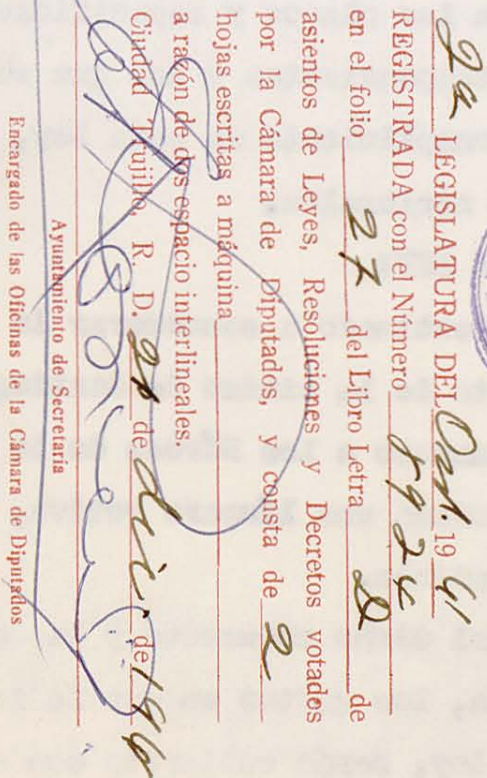 2a LEGISLATURA DEL Ord. 1961
REGISTRADA con el Número 8924
en el folio 27 del Libro Letra D de
asientos de Leyes, Resoluciones y Decretos votados
por la Cámara de Diputados, y consta de 2
hojas escritas a máquina
a razón de dos espacio interlineales,
Ciudad Trujillo, R. D. de dic. de 196
Ayuntamiento de Secretaría
Encargado de las Oficinas de la Cámara de Diputados